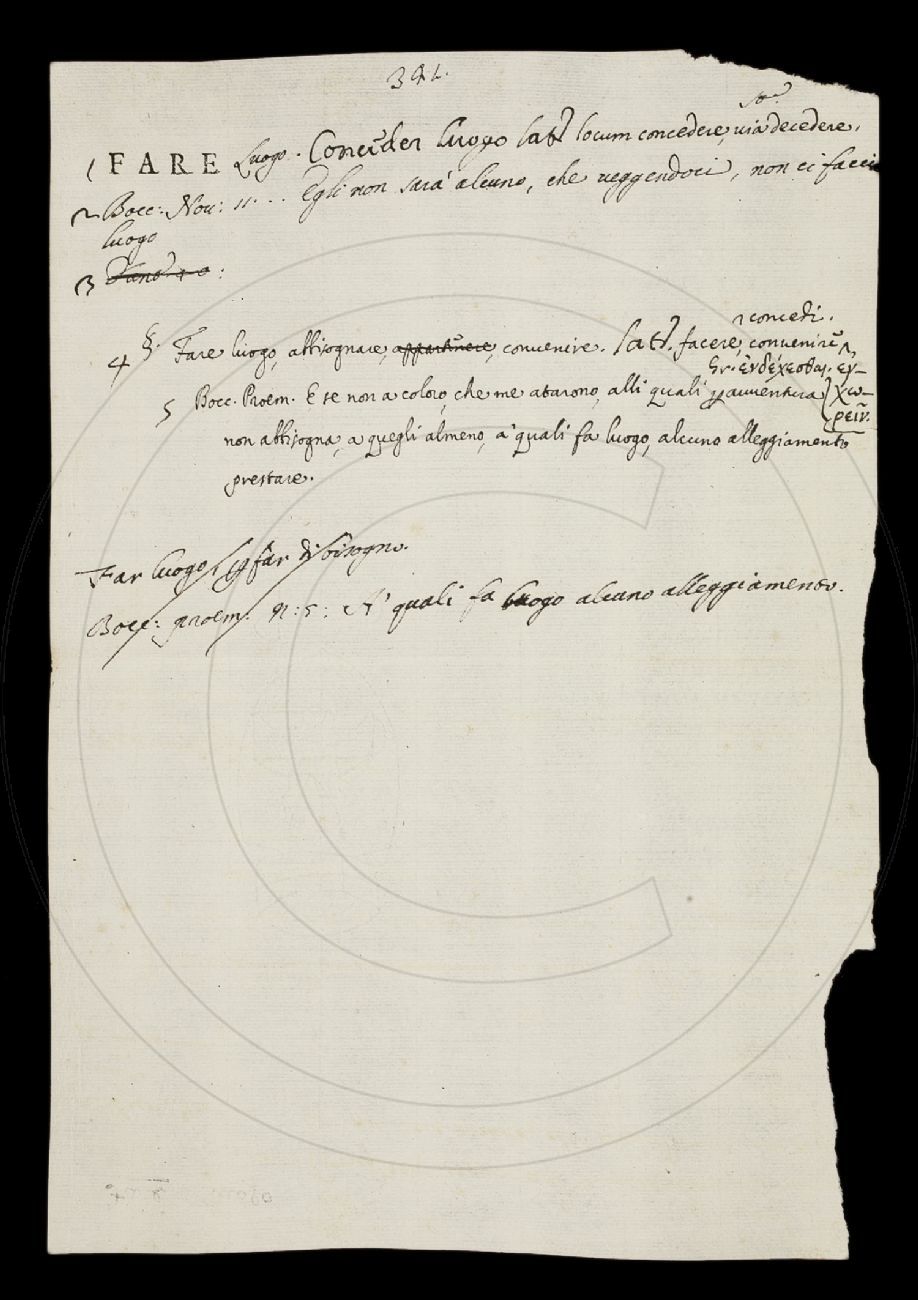 341.
1 FARE Luogo. Conceder luogo lat. locum concedere, via decedere.
2 Bocc: Nov: 11. .. Egli non sarà alcuno, che veggendoci, non ci faccia
luogo
3
4 §. Fare luogo, abbisognare, appartenere, convenire. lat. facere, convenire,
concedi.
Gr. ἐνδέχεσθαι. ἐγ-
χω-
ρεῖν.
5 Bocc. Proem. E se non a coloro, che me atarono, alli quali p avventura
non abbisogna, a quegli almeno, a' quali fa luogo, alcuno alleggiamento
prestare.
Far luogo p far di bisogno.
Bocc: proem: n: 5: A' quali fa luogo alcuno alleggiamento.